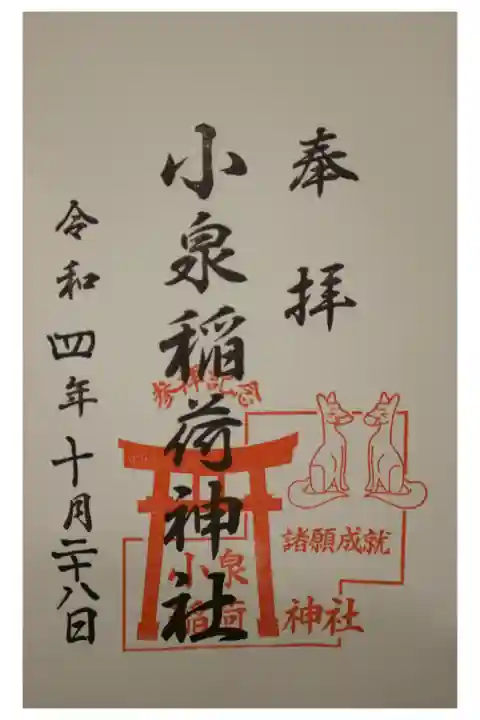 奉拝
小泉稲荷神社
令和四年十月二十八日
参拝記念
諸願成就
小泉
稲荷神社